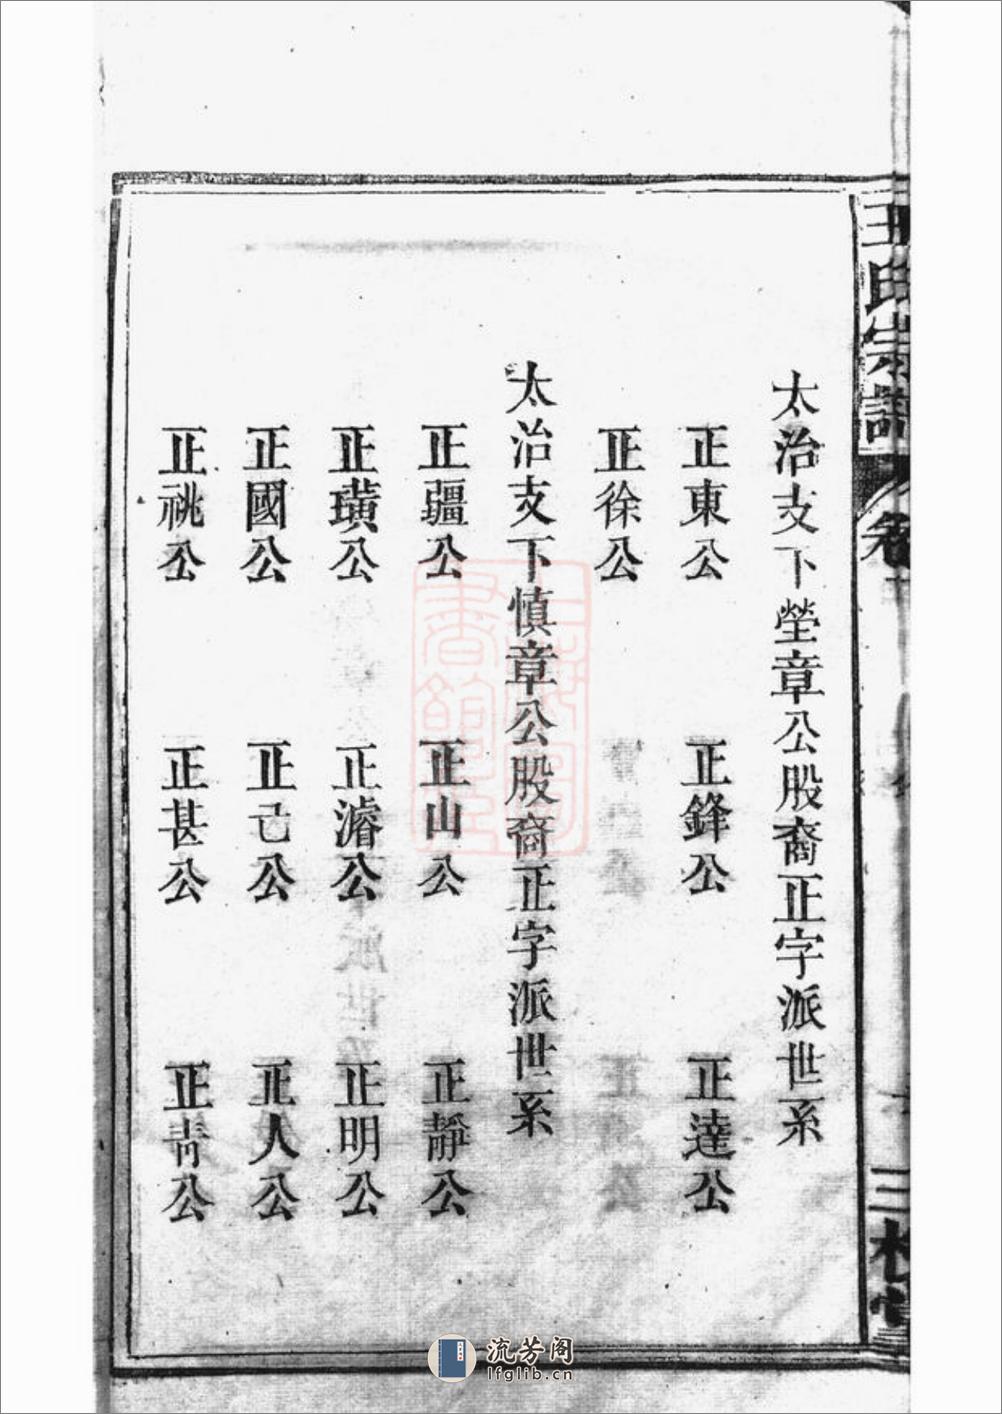 王氏宗譜
卷
三槐堂
太治支下瑩章公股裔正字派世系
正東公 正鋒公 正達公
正徐公
太治支下慎章公股裔正字派世系
正疆公 正山公 正靜公
正璜公 正濬公 正明公
正國公 正己公 正人公
正祧公 正甚公 正靑公
流芳阁
lfglib.cn